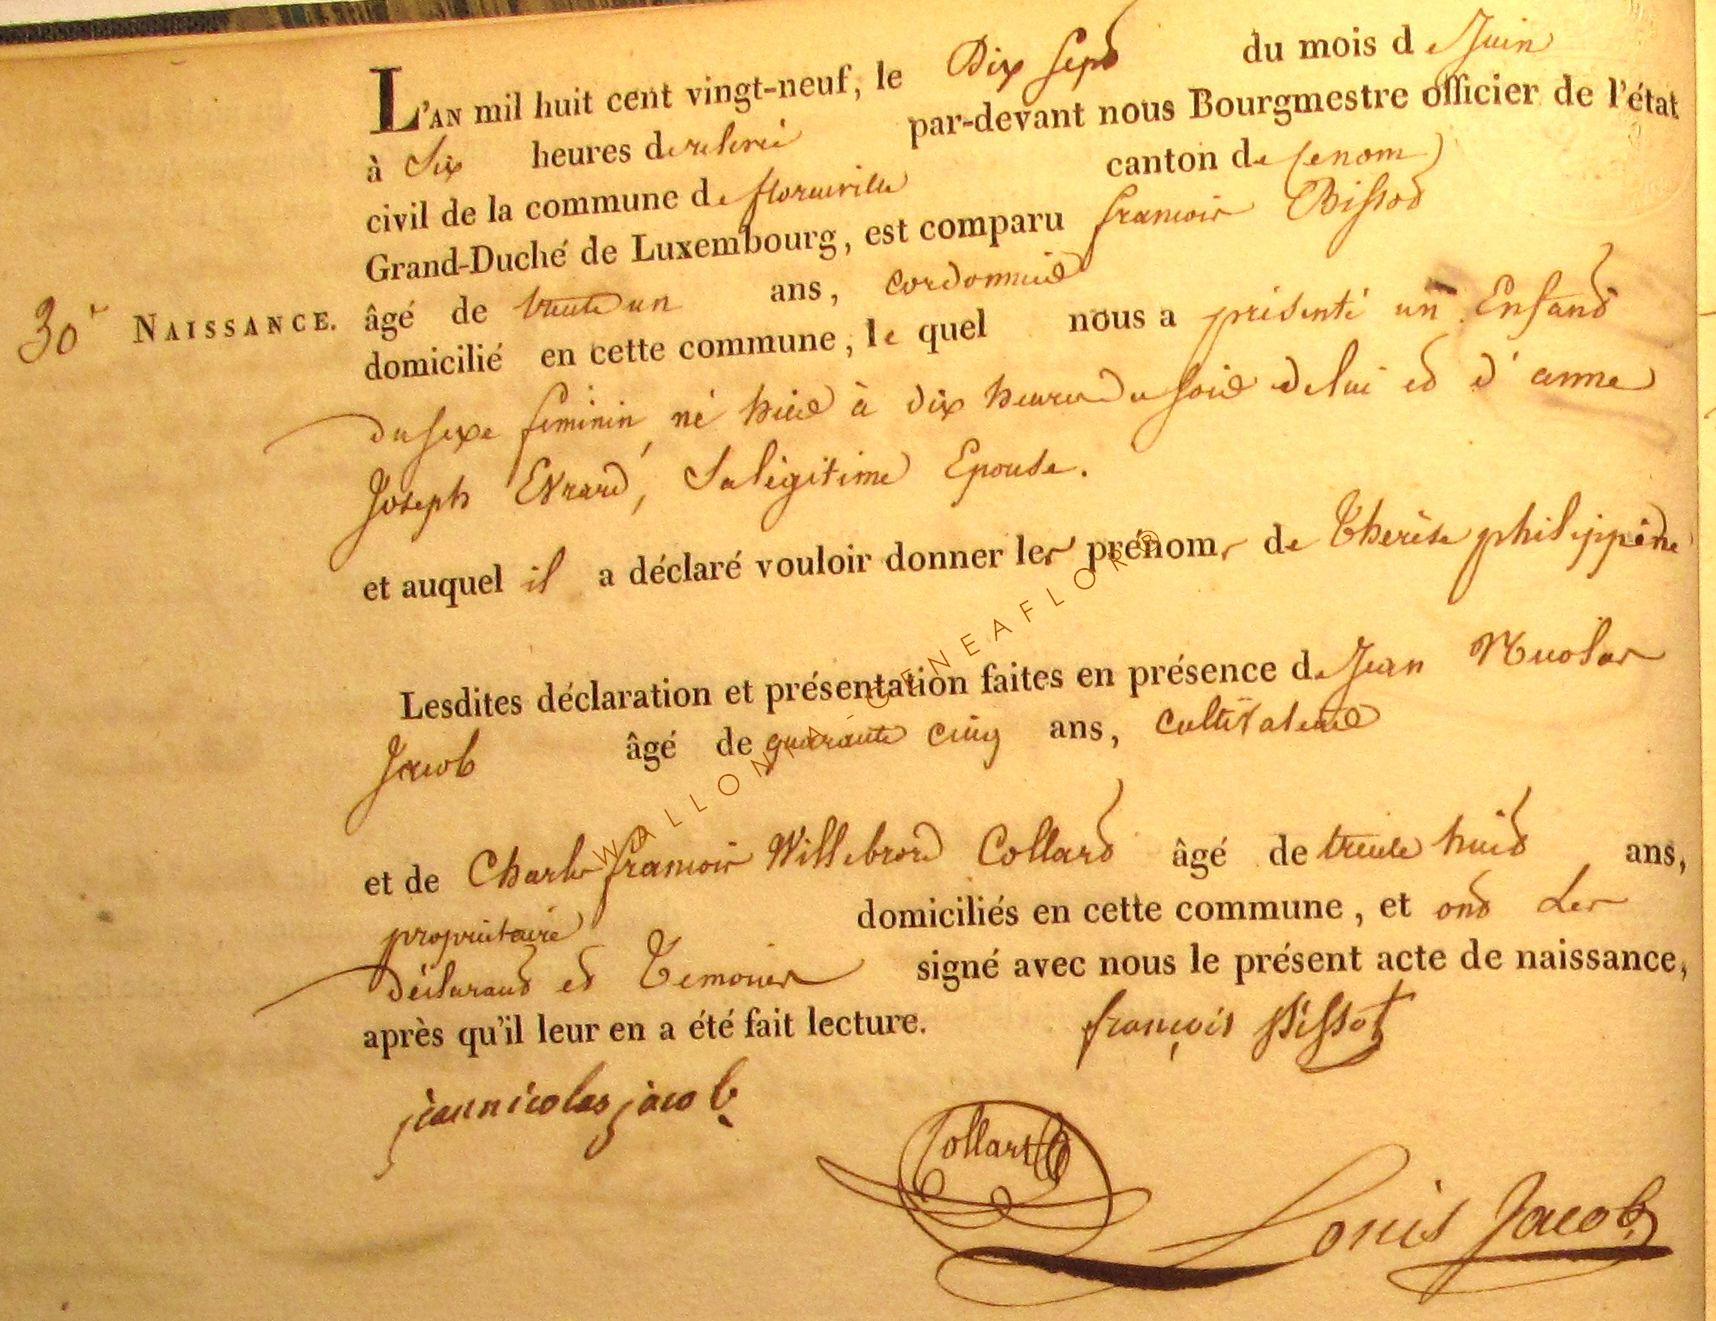 L'AN mil huit cent vingt-neuf, le Dix sept du mois de Juin
à Six heures de relevée par-devant nous Bourgmestre officier de l'état
civil de la commune de florenville canton de (enom)
Grand-Duché de Luxembourg, est comparu francois Bissot
30e NAISSANCE. âgé de trente un ans, cordonnier
domicilié en cette commune, le quel nous a présenté un Enfant
du sexe feminin né hier à dix heures du soir de lui et d'anne
Joseph Evrard, Sa légitime Epouse.
et auquel il a déclaré vouloir donner les prénoms de Therèse philippène
Lesdites déclaration et présentation faites en présence de Jean Nicolas
Jacob âgé de quarante cinq ans, cultivateur
et de Charles francois Willebrord Collard âgé de trente huit ans,
propriétaire domiciliés en cette commune, et ont Les
déclarant et Temoins signé avec nous le présent acte de naissance,
après qu'il leur en a été fait lecture. françois Bissot
jean nicolas jacob
Collard
Louis Jacob
WALLONIA-GENEAFLOR©